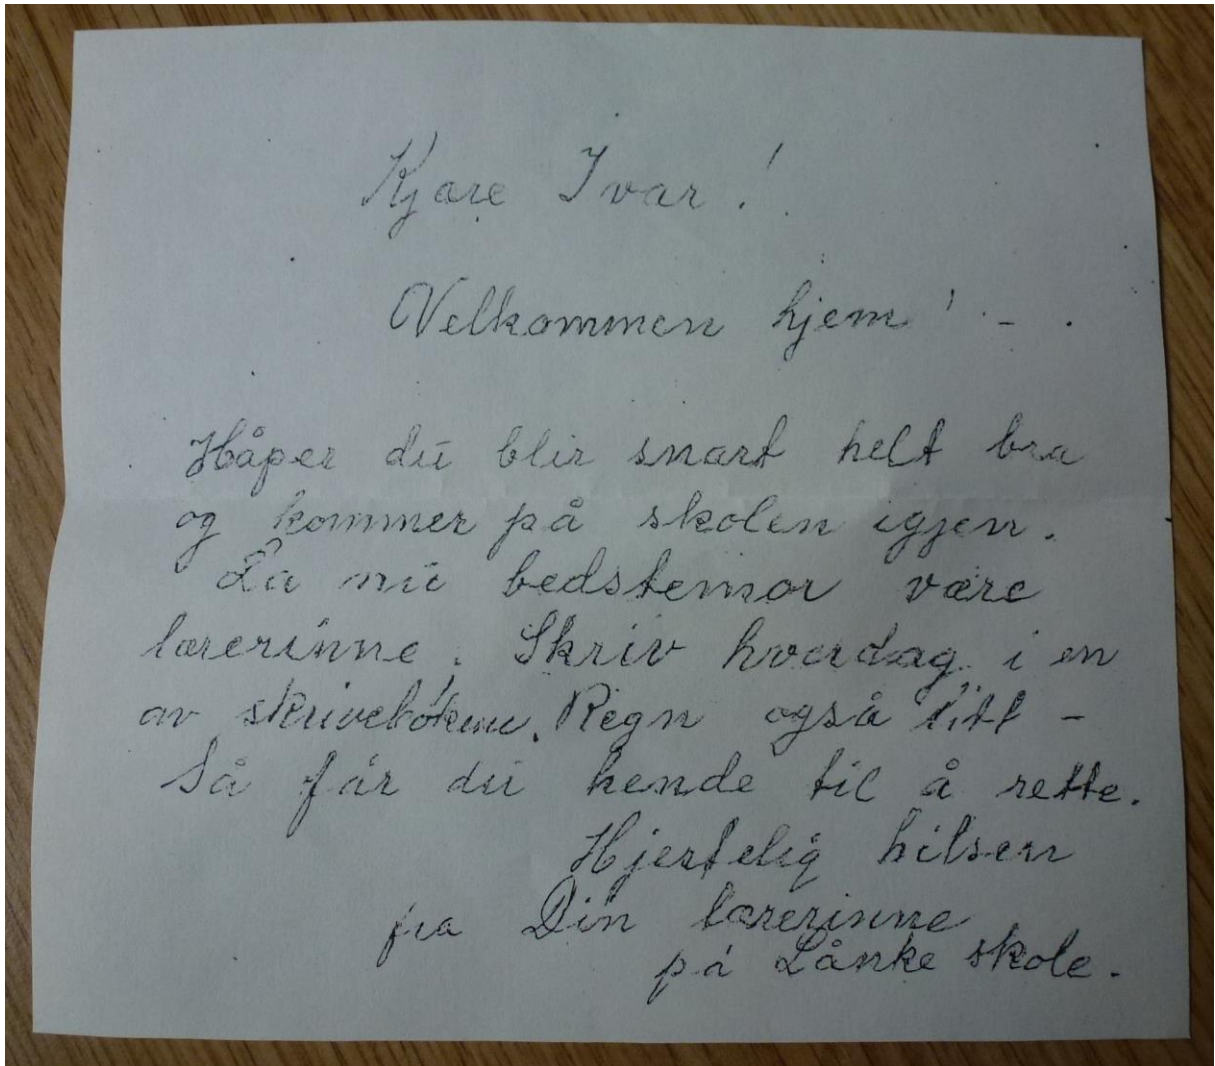 Kjære Ivar!
Velkommen hjem! -
Håper du blir snart helt bra
og kommer på skolen igjen.
La nu bedstemor være
lærerinne. Skriv hverdag i en
av skrivebökene. Regn også litt -
Så får du hende til å rette.
Hjertelig hilsen
fra Din lærerinne
på Lånke skole.